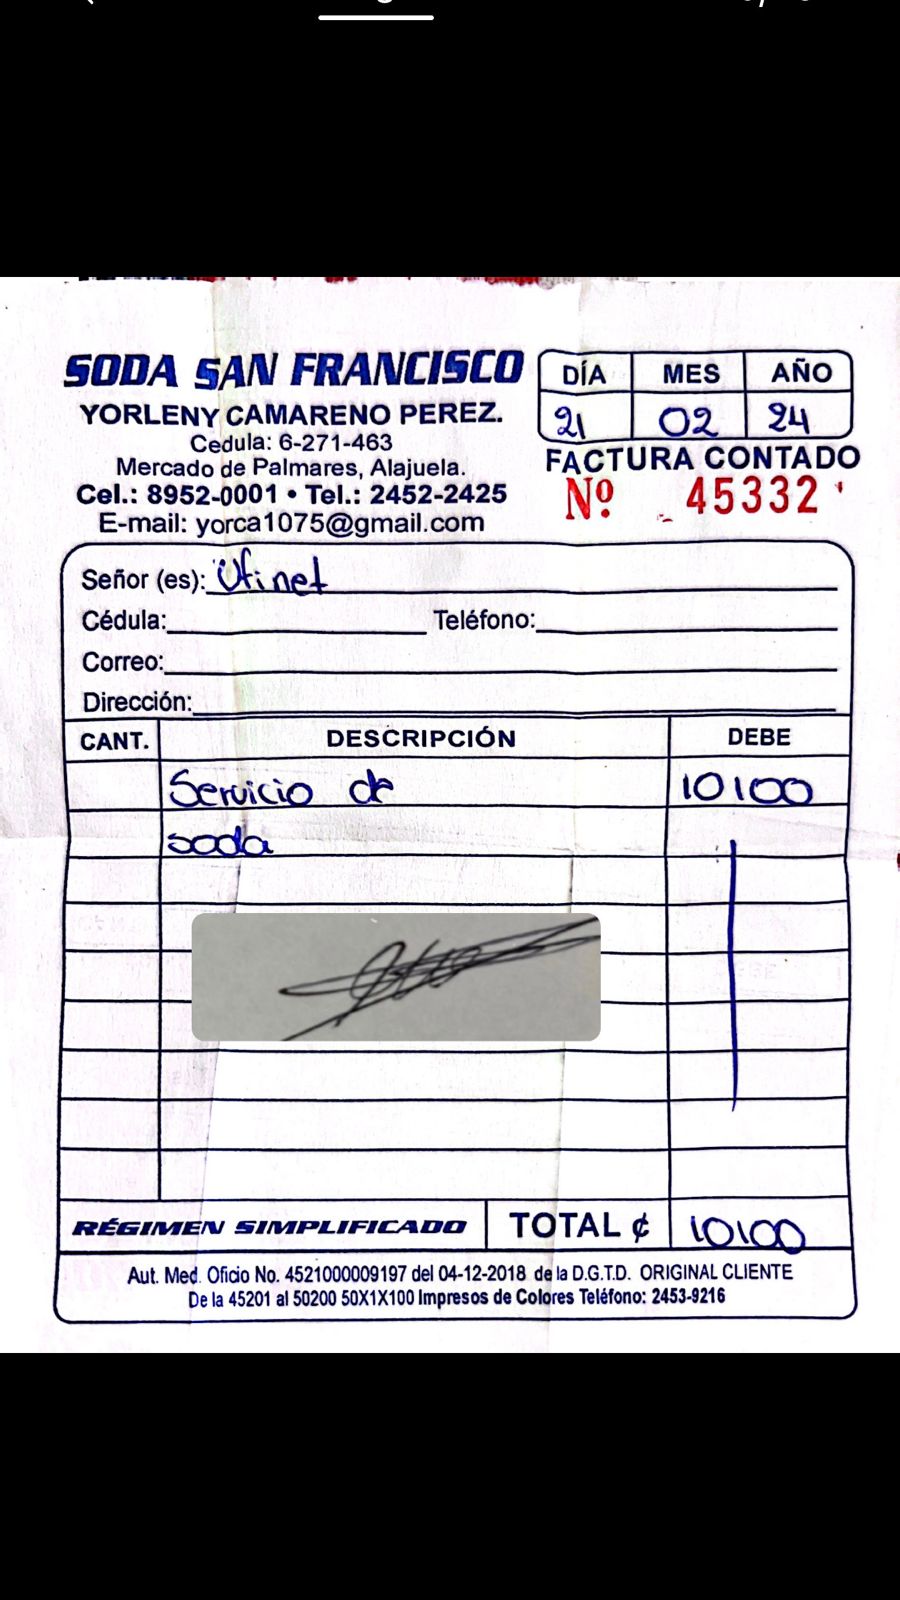 SODA SAN FRANCISCO
YORLENY CAMARENO PEREZ.
Cedula: 6-271-463
Mercado de Palmares, Alajuela.
Cel.: 8952-0001 • Tel.: 2452-2425
E-mail: yorca1075@gmail.com
DÍA MES AÑO
21 02 24
FACTURA CONTADO
Nº 45332
Señor (es): Ufinet
Cédula: Teléfono:
Correo:
Dirección:
CANT. DESCRIPCIÓN DEBE
Servicio de 10100
soda
RÉGIMEN SIMPLIFICADO TOTAL ¢ 10100
Aut. Med. Oficio No. 4521000009197 del 04-12-2018 de la D.G.T.D. ORIGINAL CLIENTE
De la 45201 al 50200 50X1X100 Impresos de Colores Teléfono: 2453-9216